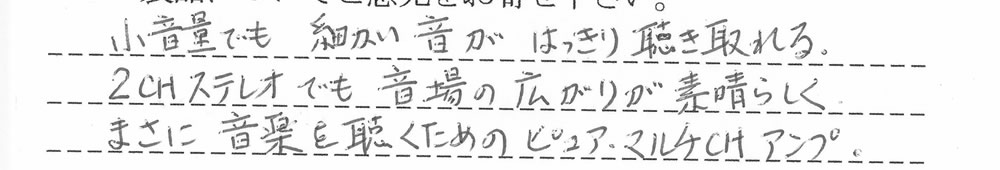 ご意見をお寄せ下さい。
小音量でも 細かい音が はっきり聴き取れる.
2CHステレオでも 音場の広がりが素晴らしく
まさに 音楽を聴くための ピュア・マルチCH アンプ.